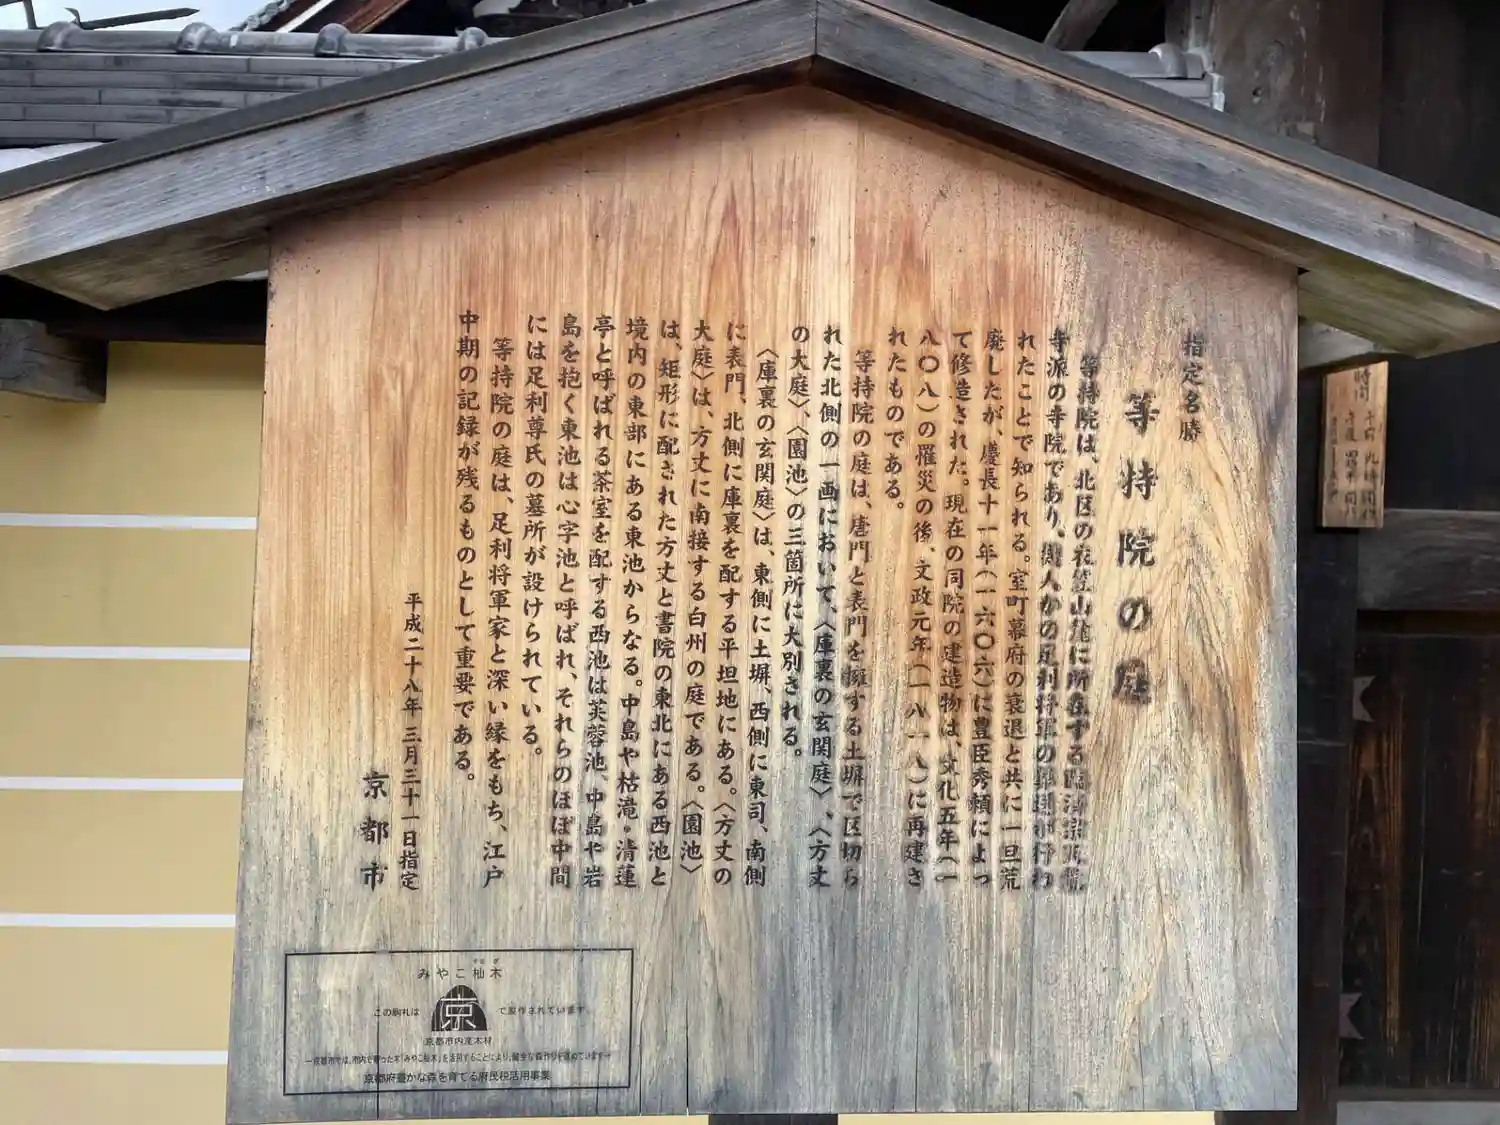 指定名勝
等持院の庭
等持院は、北区の衣笠山麓に所在する臨済宗天龍
寺派の寺院であり、歴代の足利将軍の葬送が行わ
れたことで知られる。室町幕府の衰退と共に一旦荒
廃したが、慶長十一年(一六〇六)に豊臣秀頼によっ
て修造された。現在の同院の建造物は、文化五年(一
八〇八)の罹災の後、文政元年(一八一八)に再建さ
れたものである。
等持院の庭は、唐門と表門を擁する土塀で区切ら
れた北側の一画において、〈庫裏の玄関庭〉、〈方丈
の大庭〉、〈園池〉の三箇所に大別される。
〈庫裏の玄関庭〉は、東側に土塀、西側に東司、南側
に表門、北側に庫裏を配する平坦地にある。〈方丈の
大庭〉は、方丈に南接する白州の庭である。〈園池〉
は、矩形に配された方丈と書院の東北にある西池と
境内の東部にある東池からなる。中島や枯滝・清蓮
亭と呼ばれる茶室を配する西池は芙蓉池、中島や岩
島を抱く東池は心字池と呼ばれ、それらのほぼ中間
には足利尊氏の墓所が設けられている。
等持院の庭は、足利将軍家と深い縁をもち、江戸
中期の記録が残るものとして重要である。
平成二十八年三月三十一日指定
京都市
みやこ杣木
この駒札は
京
で製作されています。
京都市内産木材
京都府豊かな森を育てる府民税活用事業